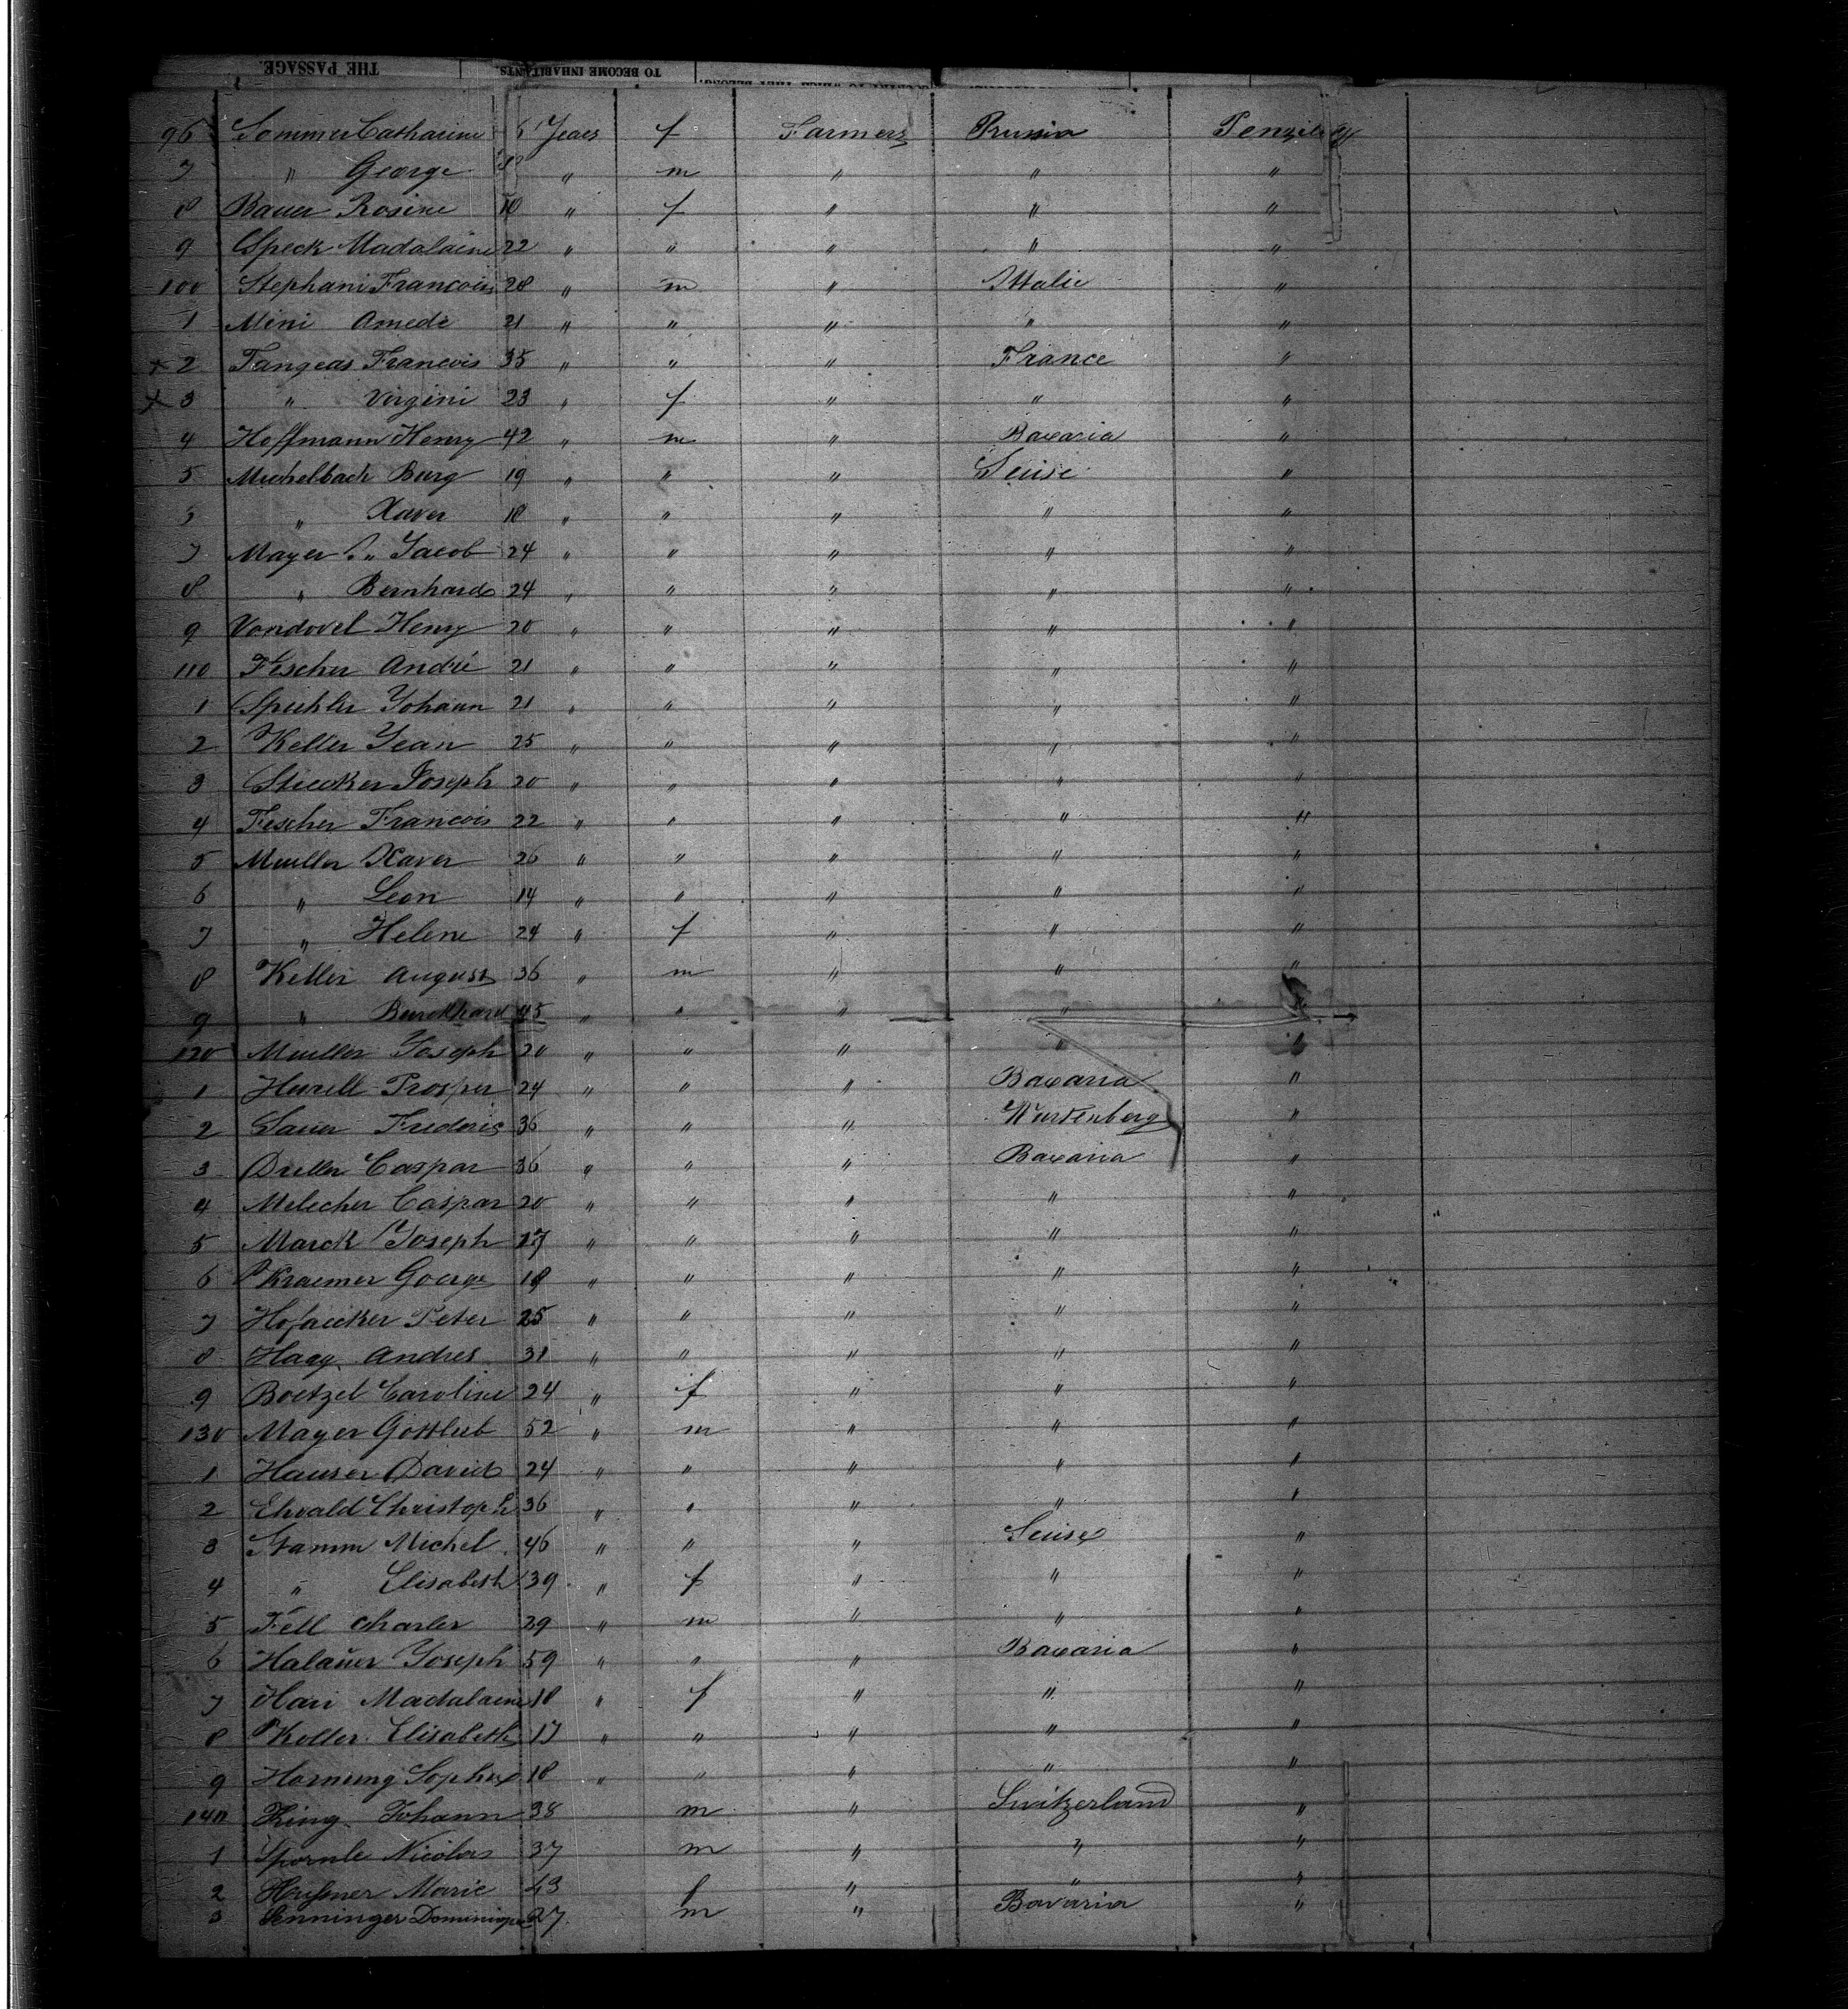 THE PASSAGE.
TO BECOME INHABITANTS.
96 Sommer Catharine 6 Years f Farmers Prussia
7 " George " m " " "
8 Bauer Rosine 18 " f " " "
9 Speck Madalaine 22 " " " " "
100 Stephani Francois 28 " m " Ittalie "
1 Mini Amede 21 " " " " "
x 2 Tangeas Francois 35 " " " France "
x 3 " Virgini 23 " f " " "
4 Hoffmann Henry 42 " m " Bavaria "
5 Michelbach Burg 19 " " " Suise "
" Xaver 18 " " " " "
7 Mayer " Jacob 24 " " " " "
8 " Bernhard 24 " " " " "
9 Vondovel Henry 20 " " " " "
110 Fischer André 21 " " " " "
1 Spiehler Johann 21 " " " " "
2 Keller Jean 25 " " " " "
3 Stucker Joseph 20 " " " " "
4 Fischer Francois 22 " " " " "
5 Mueller Xaver 26 " " " " "
6 " Leon 14 " " " " "
7 " Helene 24 " f " " "
8 Keller August 36 " m " " "
9 " Burckhard 45 " " " "
120 Mueller Joseph 20 " " " " "
1 Prosper 24 " " " Bavaria "
2 Sauer Frederic 36 " " " Wurtenberg "
3 Caspar 36 " " " Bavaria "
4 Melecher Caspar 20 " " " " "
5 Marck Joseph 27 " " " " "
6 Kraemer Goerge 18 " " " " "
7 Hofaecker Peter 25 " " " " "
8 Haag Andres 31 " " " " "
9 Boetzel Caroline 24 " f " " "
130 Mayer Gottlieb 52 " m " " "
1 Hauser David 24 " " " " "
2 Ehvald Christoph 36 " " " " "
3 Stamm Michel 46 " " " Suise "
4 " Elisabeth 39 " f " " "
5 Fell Charles 29 " m " " "
6 Halauer Joseph 59 " " " Bavaria "
7 Hari Madalaine 18 " f " " "
8 Kolter Elisabeth 17 " " " " "
9 Hornung Sophie 18 " " " " "
140 King Johann 38 m " Switzerland "
1 Spornle Nicolas 37 m " " "
2 Marie 43 f " " "
3 Senninger Dominique 27 m " Bavaria "